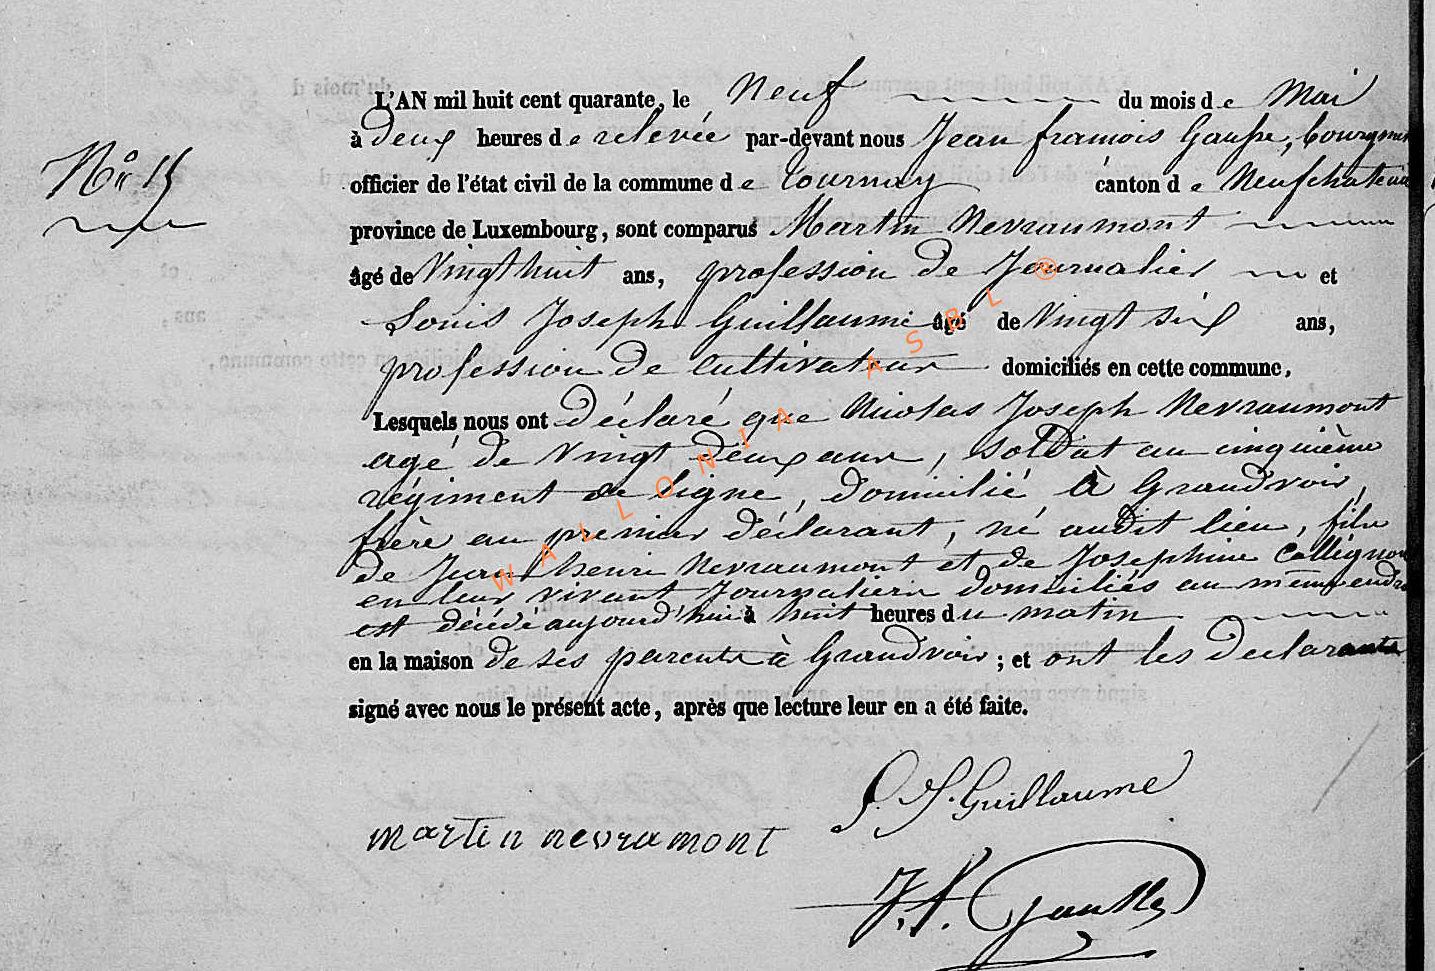 L'AN mil huit cent quarante, le Neuf du mois de Mai
à Deux heures de relevée par-devant nous Jean francois
N° 15
officier de l'état civil de la commune de Tournay canton de Neufchateau
province de Luxembourg, sont comparus Martin Nevraumont
âgé de Vingt huit ans, profession de Journalier et
Louis Joseph Guillaume âgé de Vingt six ans,
profession de Cultivateur domiciliés en cette commune,
Lesquels nous ont déclaré que Nicolas Joseph Nevraumont
agé de Vingt deux ans, soldat au cinquième
régiment de ligne, domicilié à Grandvoir,
frère au premier déclarant, né audit lieu, fils
de Jean henri Nevraumont et de Josephine Collignon
en leur vivant Journaliers domiciliés au même
est décédé aujourd'hui à huit heures du matin
en la maison de ses parents à Grandvoir ; et ont les declarants
signé avec nous le présent acte, après que lecture leur en a été faite.
Guillaume
martin nevramont
WALLONIA ASBL ®